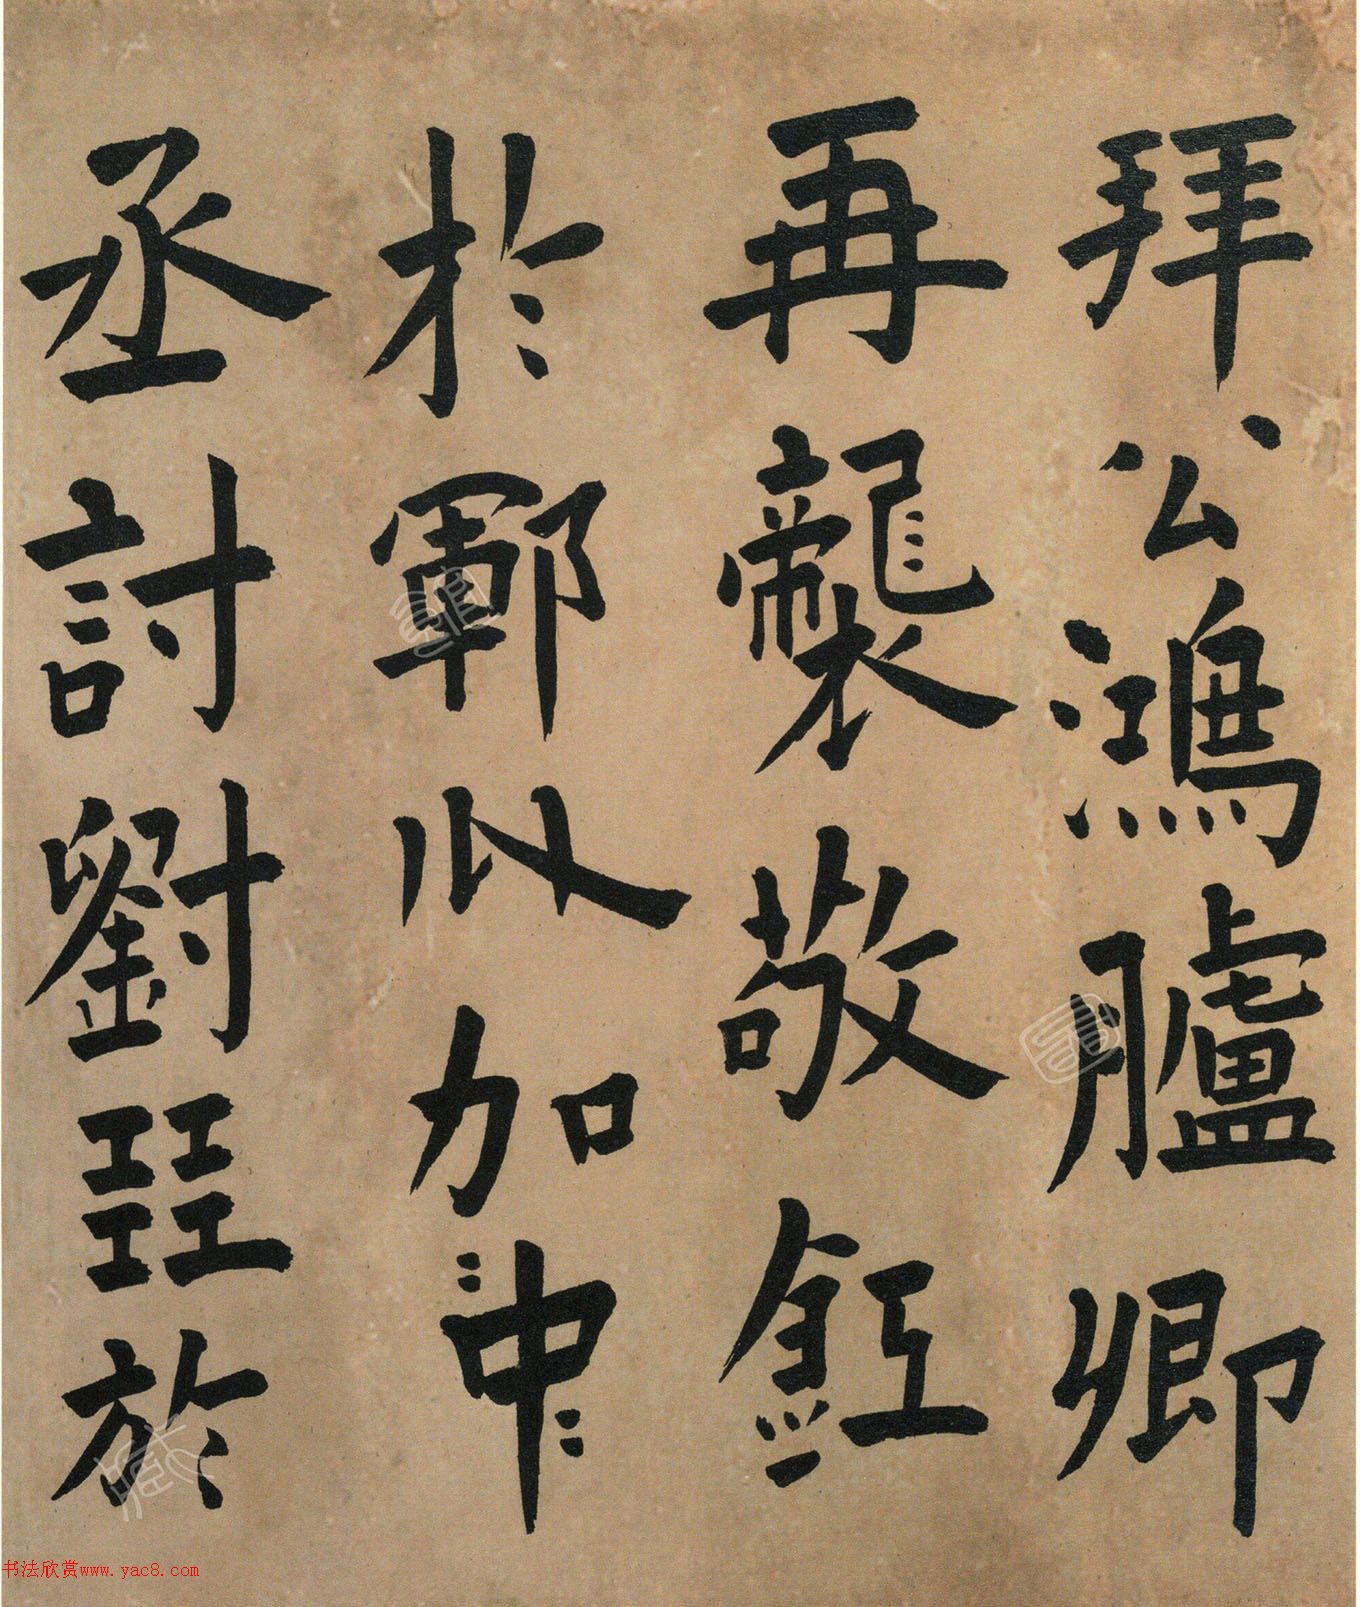 拜公鴻臚卿
再襲敬釭
於鄆以加中
丞討劉㠭於
书法欣赏www.yac8.com